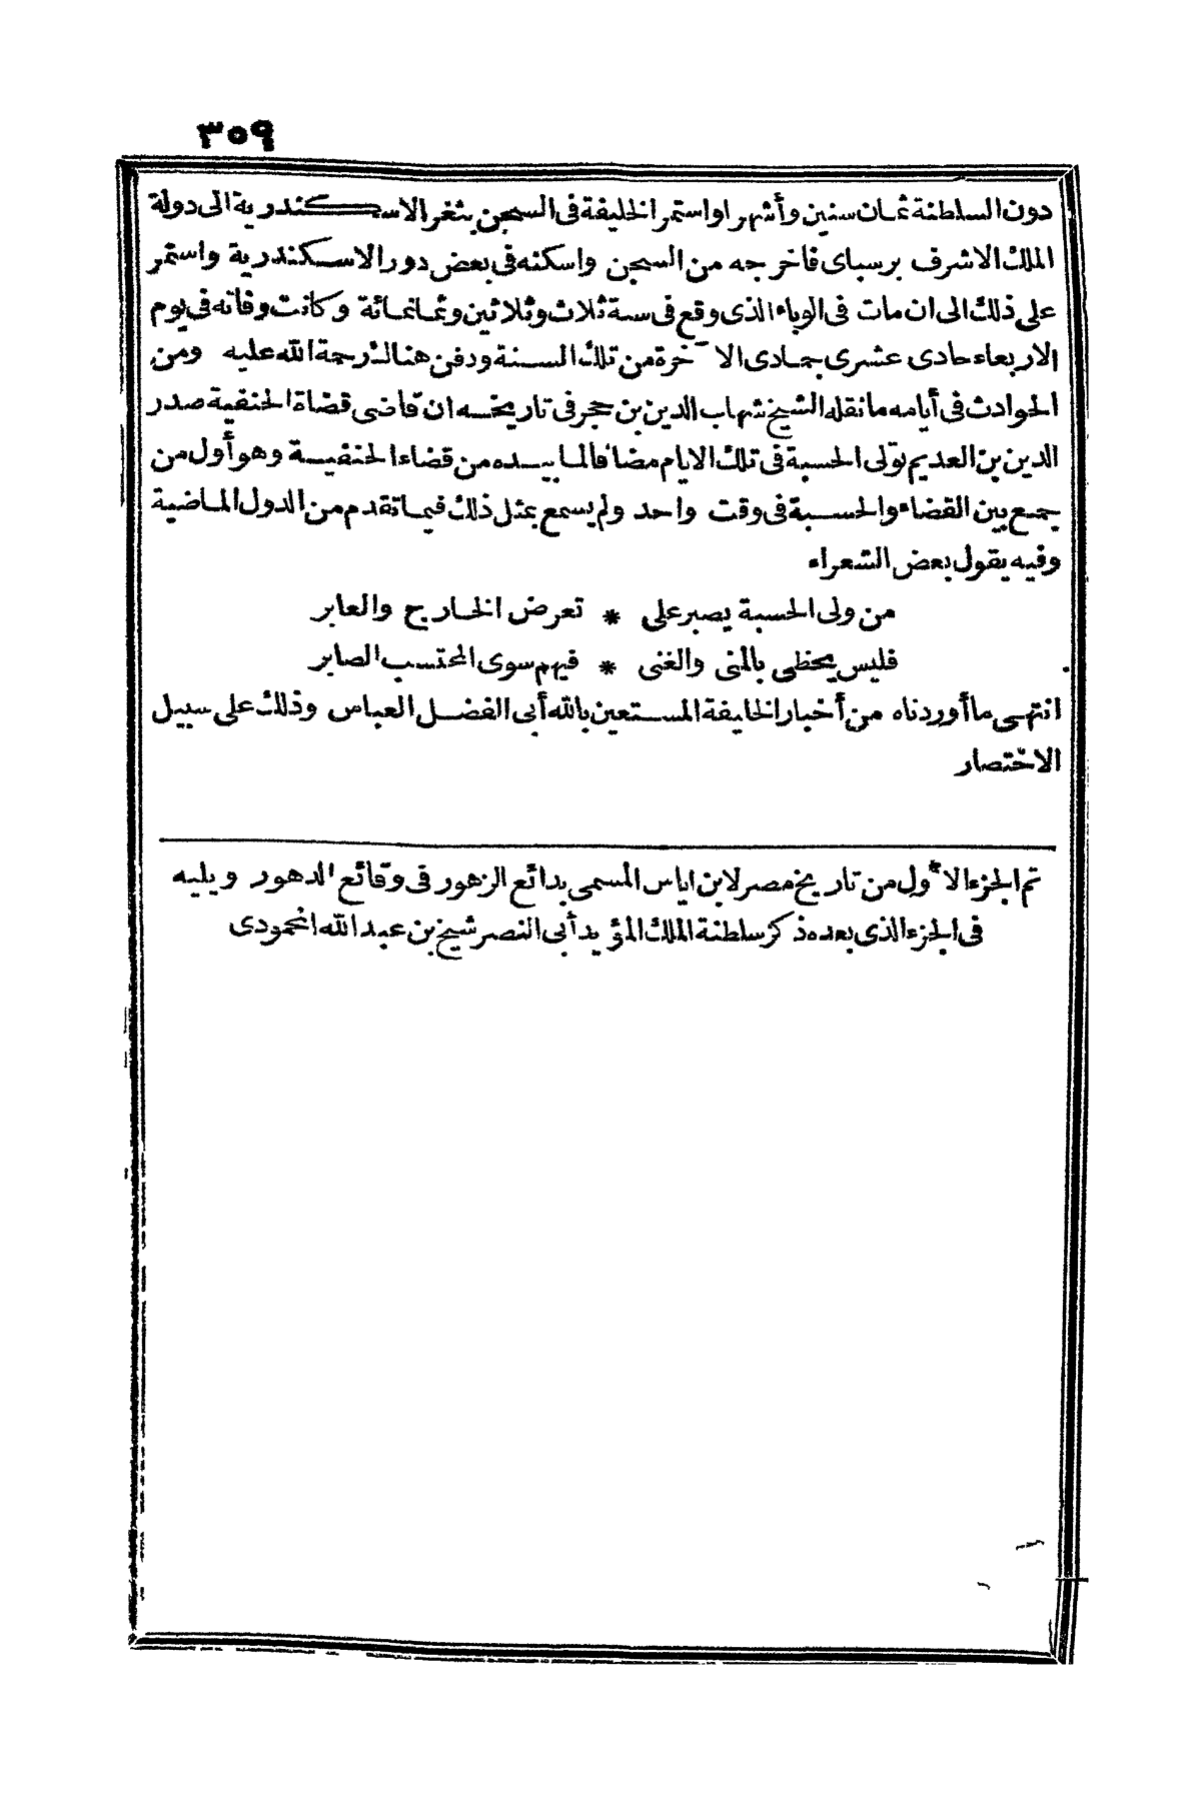 ٣٥٩
دون السلطنة ثمان سنين وأشهرا واستمر الخليفة فى السجن بثغر الاسكندرية الى دولة
الملك الاشرف برسباى فاخرجه من السجن واسكنه فى بعض دور الاسكندرية واستمر
على ذلك الى ان مات فى الوباء الذى وقع فى سنة ثلاث وثلاثين وثمانمائة وكانت وفاته فى يوم
الاربعاء حادى عشرى جمادى الآخرة من تلك السنة ودفن هناك رحمة الله عليه ومن
الحوادث فى أيامه مانقله الشيخ شهاب الدين بن حجر فى تاريخه ان قاضى قضاة الحنفية صدر
الدين بن العديم تولى الحسبة فى تلك الايام مضافا لما بيده من قضاء الحنفية وهو أول من
جمع بين القضاء والحسبة فى وقت واحد ولم يسمع بمثل ذلك فيما تقدم من الدول الماضية
وفيه يقول بعض الشعراء
من ولى الحسبة يصبر على * تعرض الخارج والعابر
فليس يحظى بالمنى والغنى * فيهم سوى المحتسب الصابر
انتهى ما أوردناه من أخبار الخليفة المستعين بالله أبى الفضل العباس وذلك على سبيل
الاختصار
تم الجزء الأول من تاريخ مصر لابن اياس المسمى بدائع الزهور فى وقائع الدهور ويليه
فى الجزء الذى بعده ذكر سلطنة الملك المؤيد أبى النصر شيخ بن عبد الله المحمودى